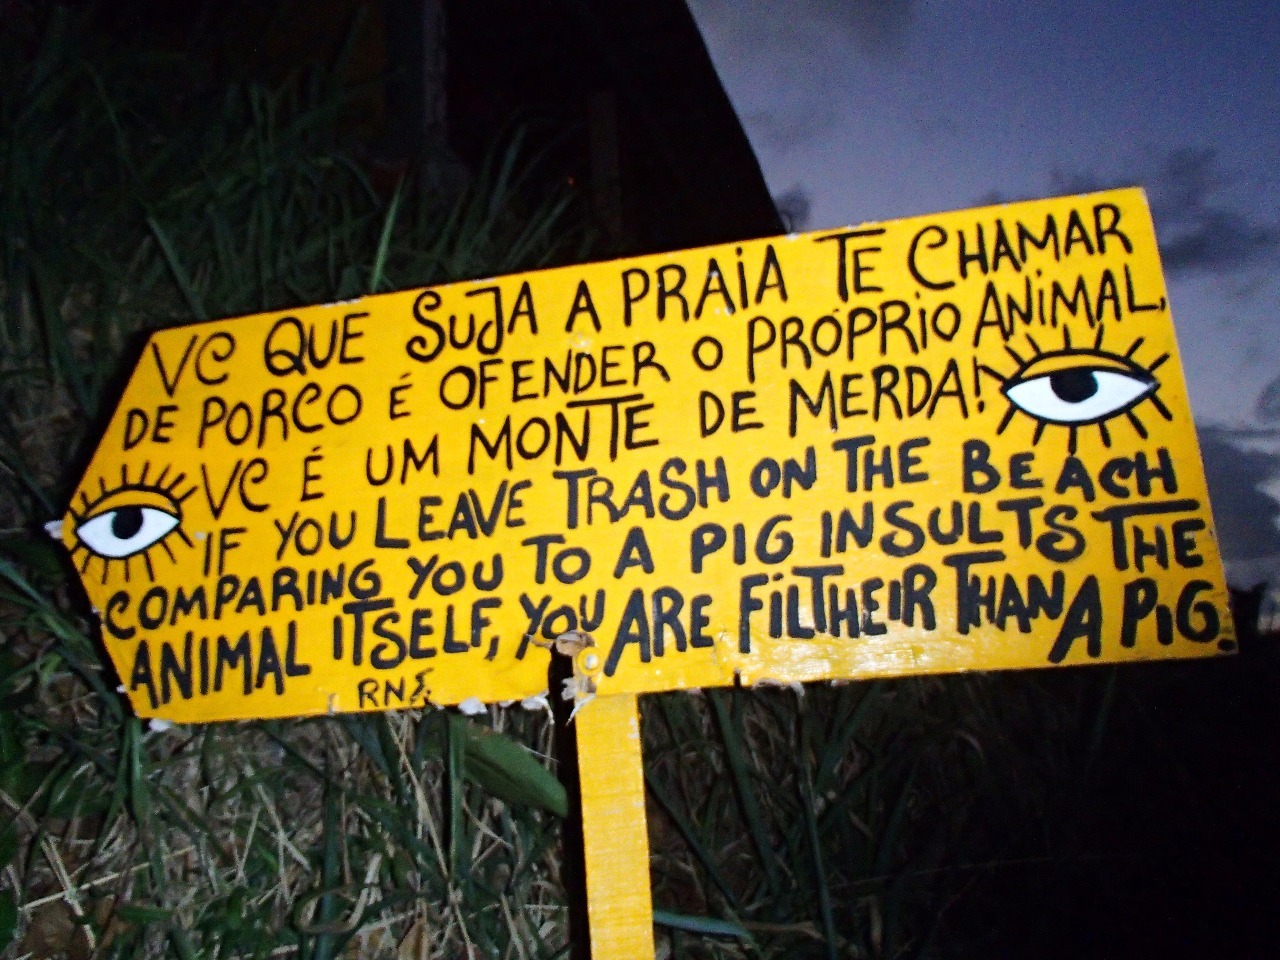 VC QUE SUJA A PRAIA TE CHAMAR
DE PORCO É OFENDER O PRÓPRIO ANIMAL,
VC É UM MONTE DE MERDA!
IF YOU LEAVE TRASH ON THE BEACH
COMPARING YOU TO A PIG INSULTS THE
ANIMAL ITSELF, YOU ARE FILTHEIR THAN A PIG.
RNΣ